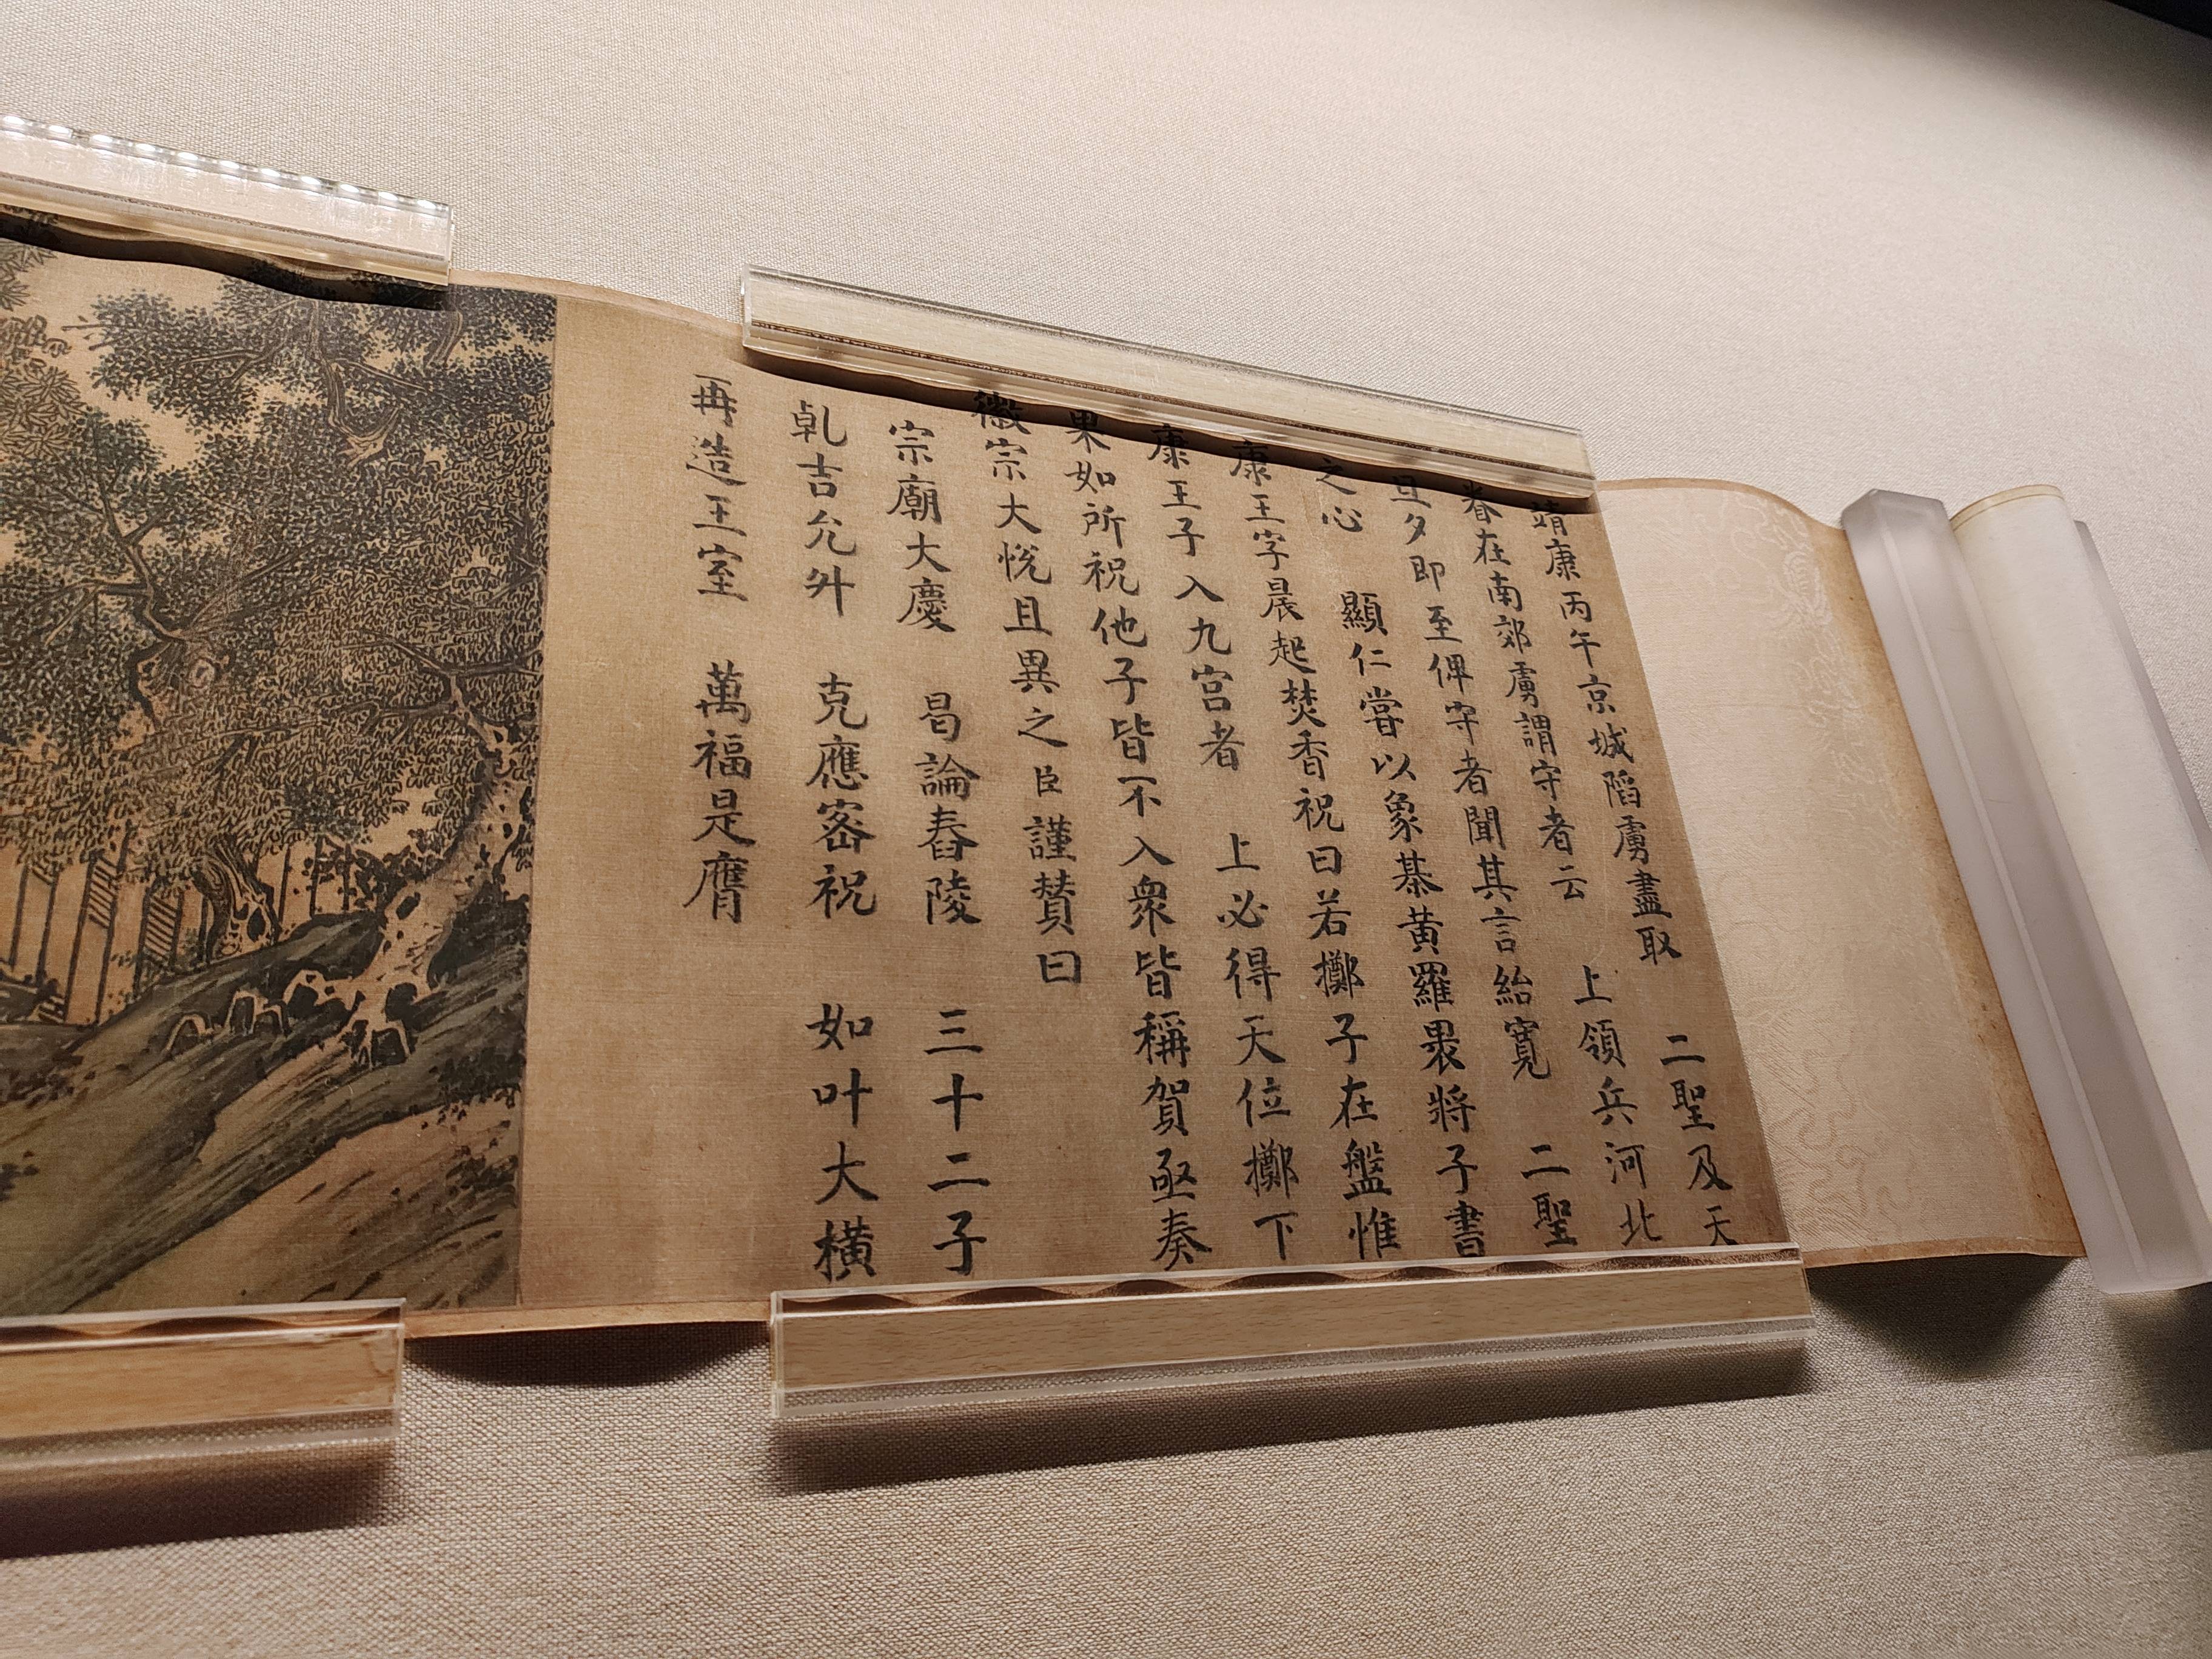 靖康丙午京城陷虜盡取　二聖及天
眷在南郊虜謂守者云　上領兵河北
旦夕即至俾守者聞其言紿寬　二聖
之心　顯仁嘗以象棊黃羅褁將子書
康王字晨起焚香祝曰若擲子在盤惟
康王子入九宮者　上必得天位擲下
果如所祝他子皆不入衆皆稱賀亟奏
徽宗大悅且異之臣謹賛曰
宗廟大慶　曷論舂陵　三十二子
乹吉允升　克應密祝　如叶大橫
再造王室　萬福是膺